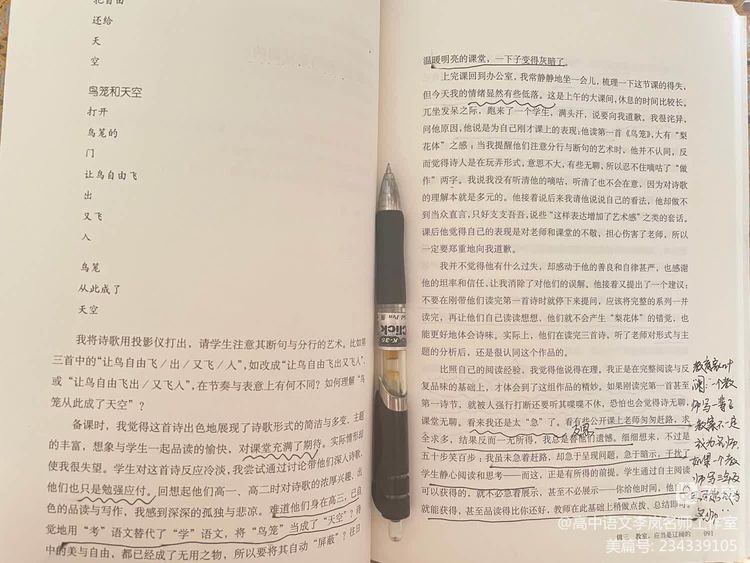 还给
天
空
鸟笼和天空
打开
鸟笼的
门
让鸟自由飞
出
又飞
人
鸟笼
从此成了
天空
我将诗歌用投影仪打出，请学生注意其断句与分行的艺术。比如第
三首中的“让鸟自由飞/出/又飞/人”，如改成“让鸟自由飞出又飞人”，
或“让鸟自由飞出/又飞人”，在节奏与表意上有何不同？如何理解“鸟
笼从此成了天空”？
备课时，我觉得这首诗出色地展现了诗歌形式的简洁与多变、主题
的丰富，想象与学生一起品读的愉快，对课堂充满了期待。实际情形却
使我很失望。学生对这首诗反应冷淡，我尝试通过讨论带他们深入诗歌，
他们也只是勉强应付。回想起他们高一、高二时对诗歌的浓厚兴趣、出
色的品读与写作，我感到深深的孤独与悲凉。难道他们身在高三，已自
觉地用“考”语文替代了“学”语文，将“鸟笼”当成了“天空”？诗
中的美与自由，都已经成了无用之物，所以要将其自动“屏蔽”？往日
温暖明亮的课堂，一下子变得灰暗了。
上完课回到办公室，我常静静地坐一会儿，梳理一下这节课的得失，
但今天我的情绪显然有些低落。这是上午的大课间，休息的时间比较长。
兀坐发呆之际，跑来了一个学生，满头汗，说要向我道歉。我很诧异，
问他原因，他说是为自己刚才课上的表现：他读第一首《鸟笼》，大有“梨
花体”之感；当我提醒他们注意分行与断句的艺术时，他并不认同，反
而觉得诗人是在玩弄形式，意思不大，有些无聊，所以忍不住嘀咕了“做
作”两字。我说我没有听清他的嘀咕，听清了也不会在意，因为对诗歌
的理解本就是多元的。他接着说后来我请他说说自己的看法，他却做不
到当众直言，只好支支吾吾，说些“这样表达增加了艺术感”之类的套话。
课后他觉得自己的表现是对老师和课堂的不敬，担心伤害了老师，所以
一定要郑重地向我道歉。
我并不觉得他有什么过失，却感动于他的善良和自律甚严，也感谢
他的坦率和信任，让我消除了对他们的误解。他接着又提出了一个建议：
不要在刚带他们读完第一首诗时就停下来提问，应该将完整的系列一并
读完，再让他们自己读读想想，他们就不会产生“梨花体”的错觉，也
能更好地体会诗味。实际上，他们在读完三首诗，听了老师对形式与主
题的分析后，还是很认同这个作品的。
比照自己的阅读经验，我觉得他说得在理，我正是在完整阅读与反
复品味的基础上，才体会到了这组作品的精妙。如果刚读完第一首甚至
第一诗节，就被人强行打断还要听其喋喋不休，恐怕也会觉得诗无聊、
课堂无聊。看来我还是太“急”了。看有些公开课上老师匆匆赶路，求
全求多，结果反而一无所得，我总是替他们遗憾。细细想来，不过是
五十步笑百步；我虽未急着赶路，却急于呈现问题，急于暗示，干扰了
学生静心阅读和思考——而这，正是有所得的前提。学生通过自主阅读
可以获得的，就不必急着展示，甚至不必展示——你给他时间，他
就能获得，甚至品读得比你还好，教师在此基础上稍做点拨、总结即可。
教育家叶
澜：一个教
师写一辈子
教案不一定
成为名师，
如果一个教
师写三年反
辑三 教室，应当是辽阔的 091
@高中语文李凤名师工作室
美篇号: 234339105